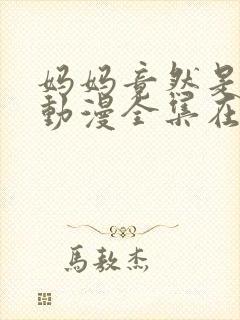 妈妈竟然是
動漫全集在
馬敖杰